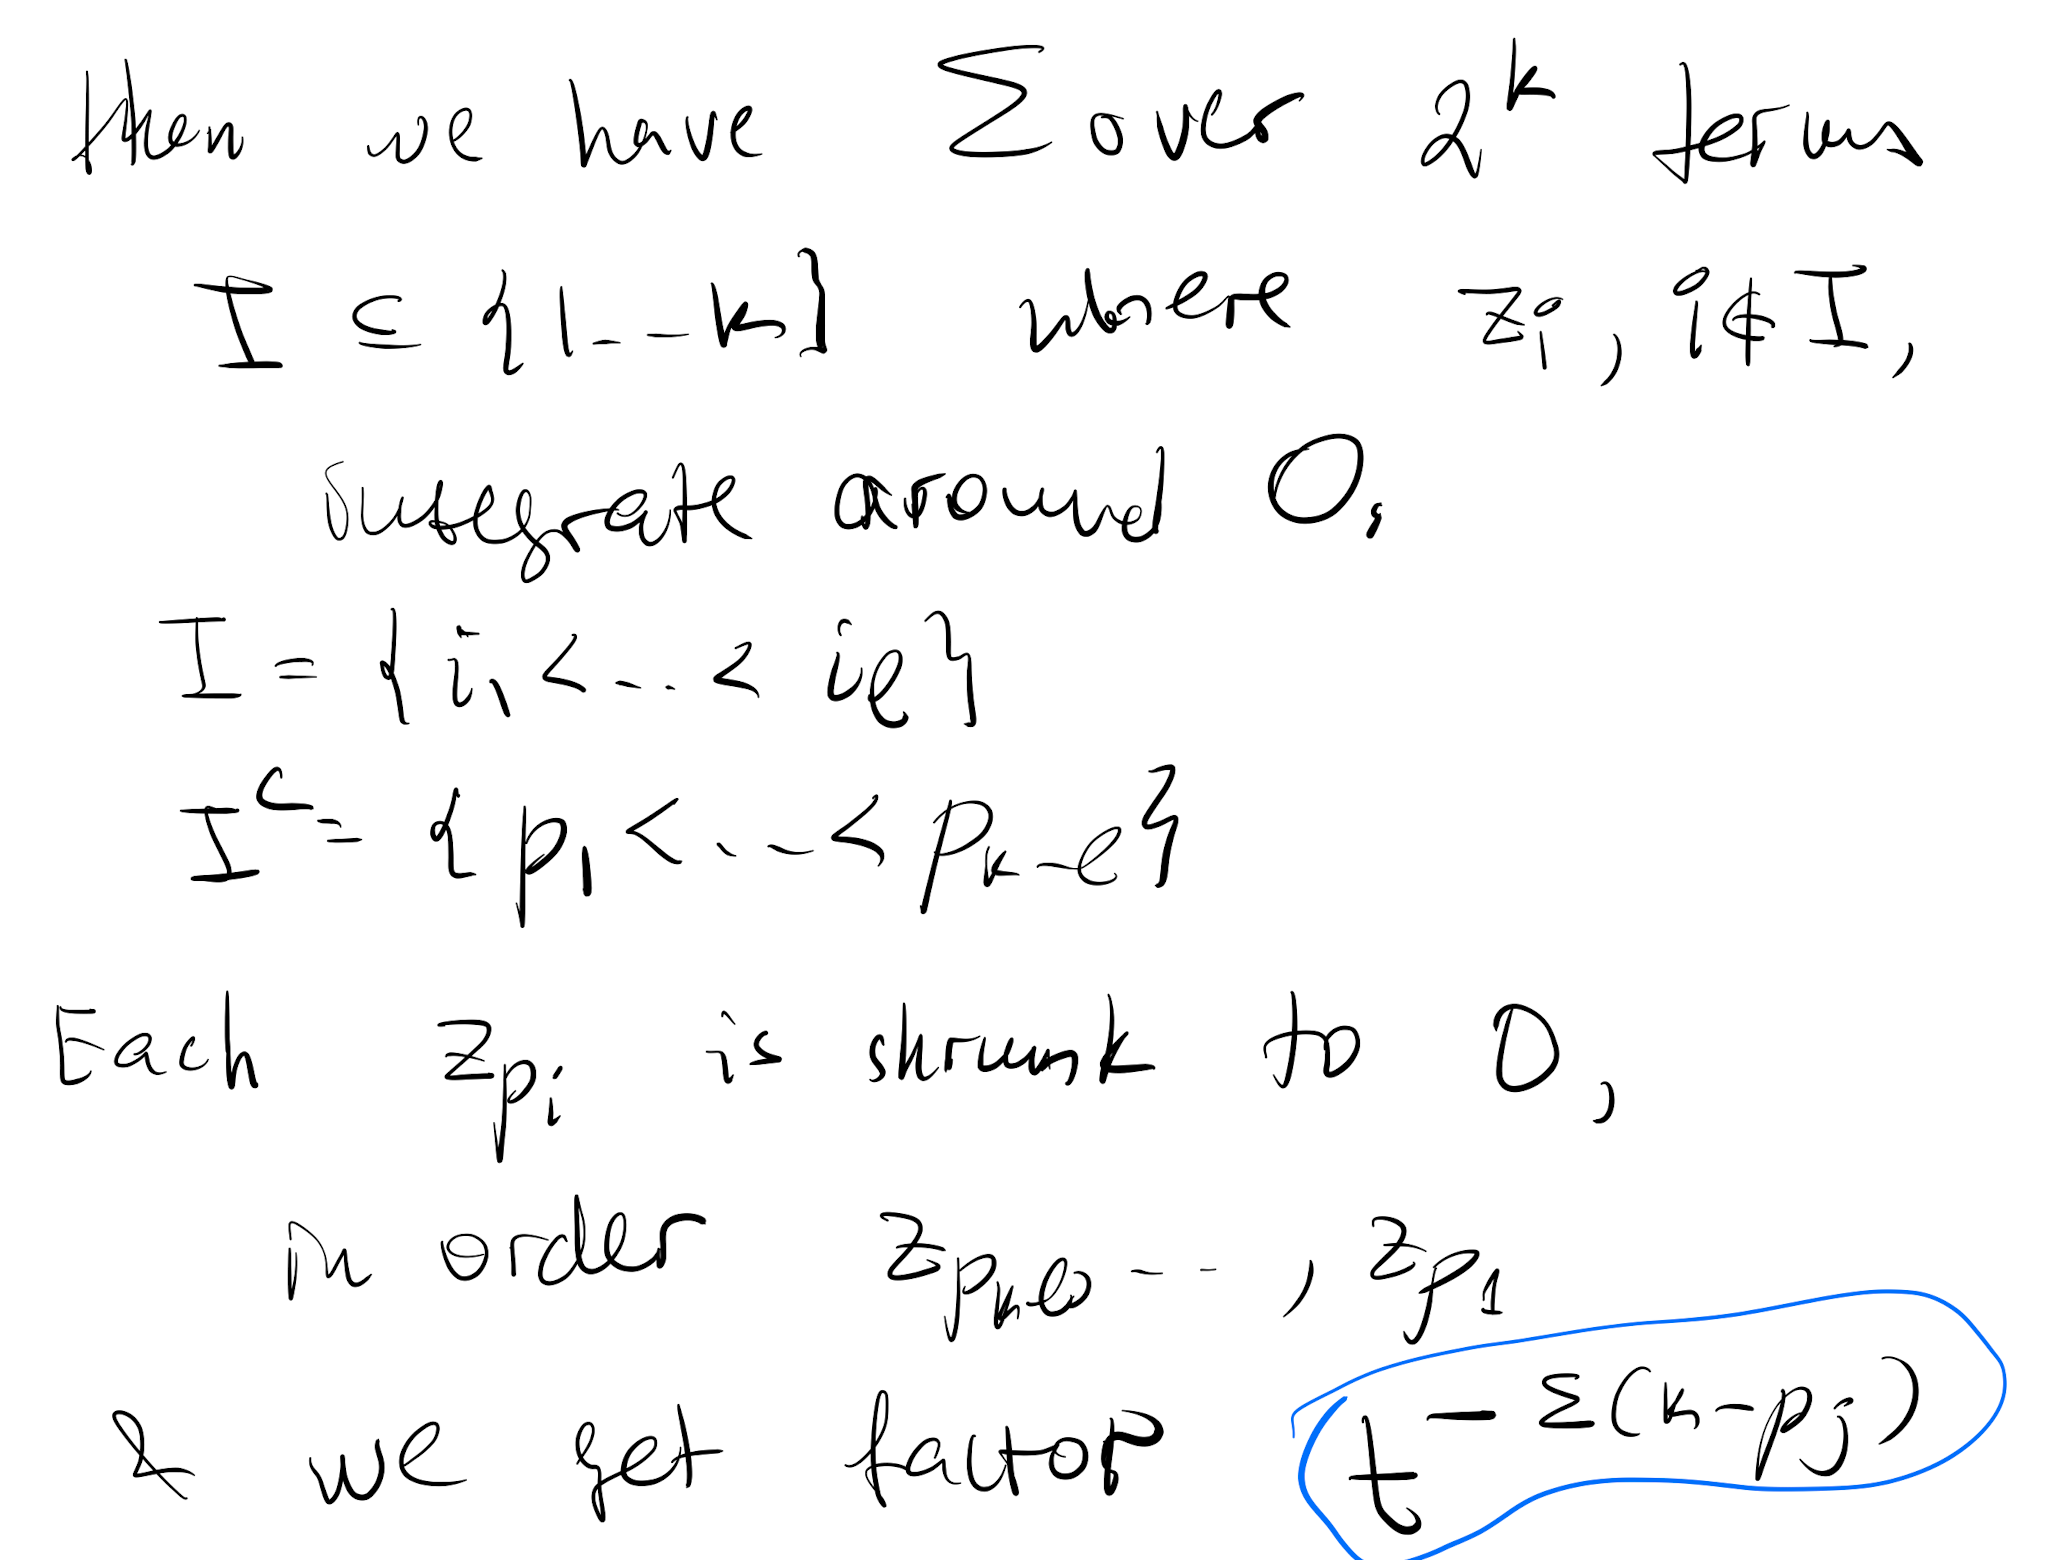 then we have Σ over 2^k terms
I ⊆ {1...k} where z_i, i∉I,
integrate around 0.
I = {i_1 < ... < i_ℓ}
I^c = {p_1 < ... < p_{k-ℓ}}
Each z_{p_i} is shrunk to 0,
in order z_{p_{k-ℓ}}, ..., z_{p_1}
& we get factor t^{-Σ(k-p_j)}